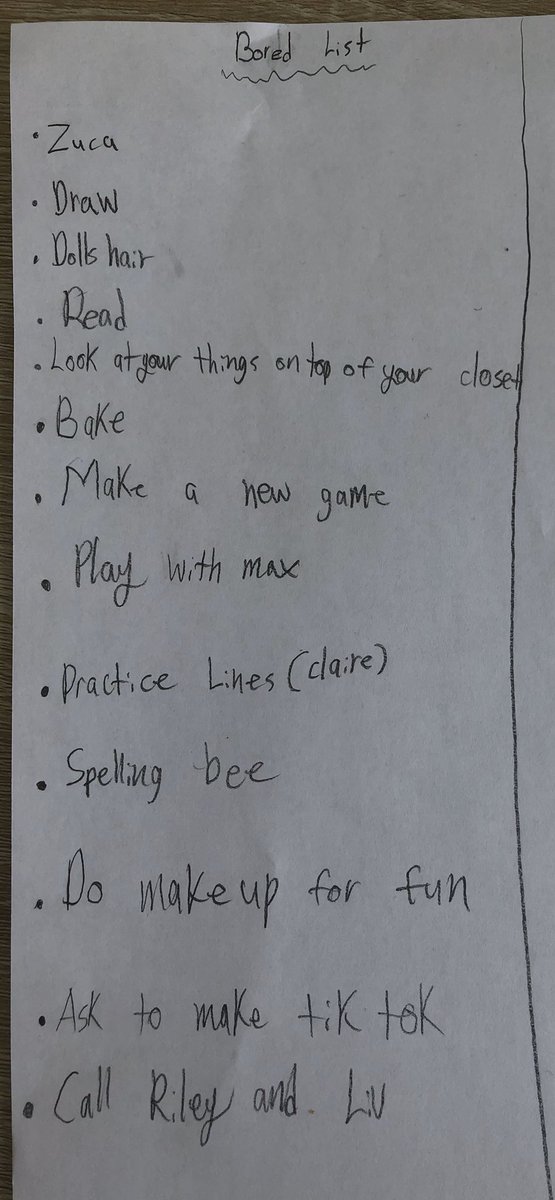 Bored List
• Zuca
• Draw
• Dolls hair
• Read
• Look at your things on top of your closet
• Bake
• Make a new game
• Play with max
• Practice Lines (claire)
• Spelling bee
• Do makeup for fun
• Ask to make tik tok
• Call Riley and Liv